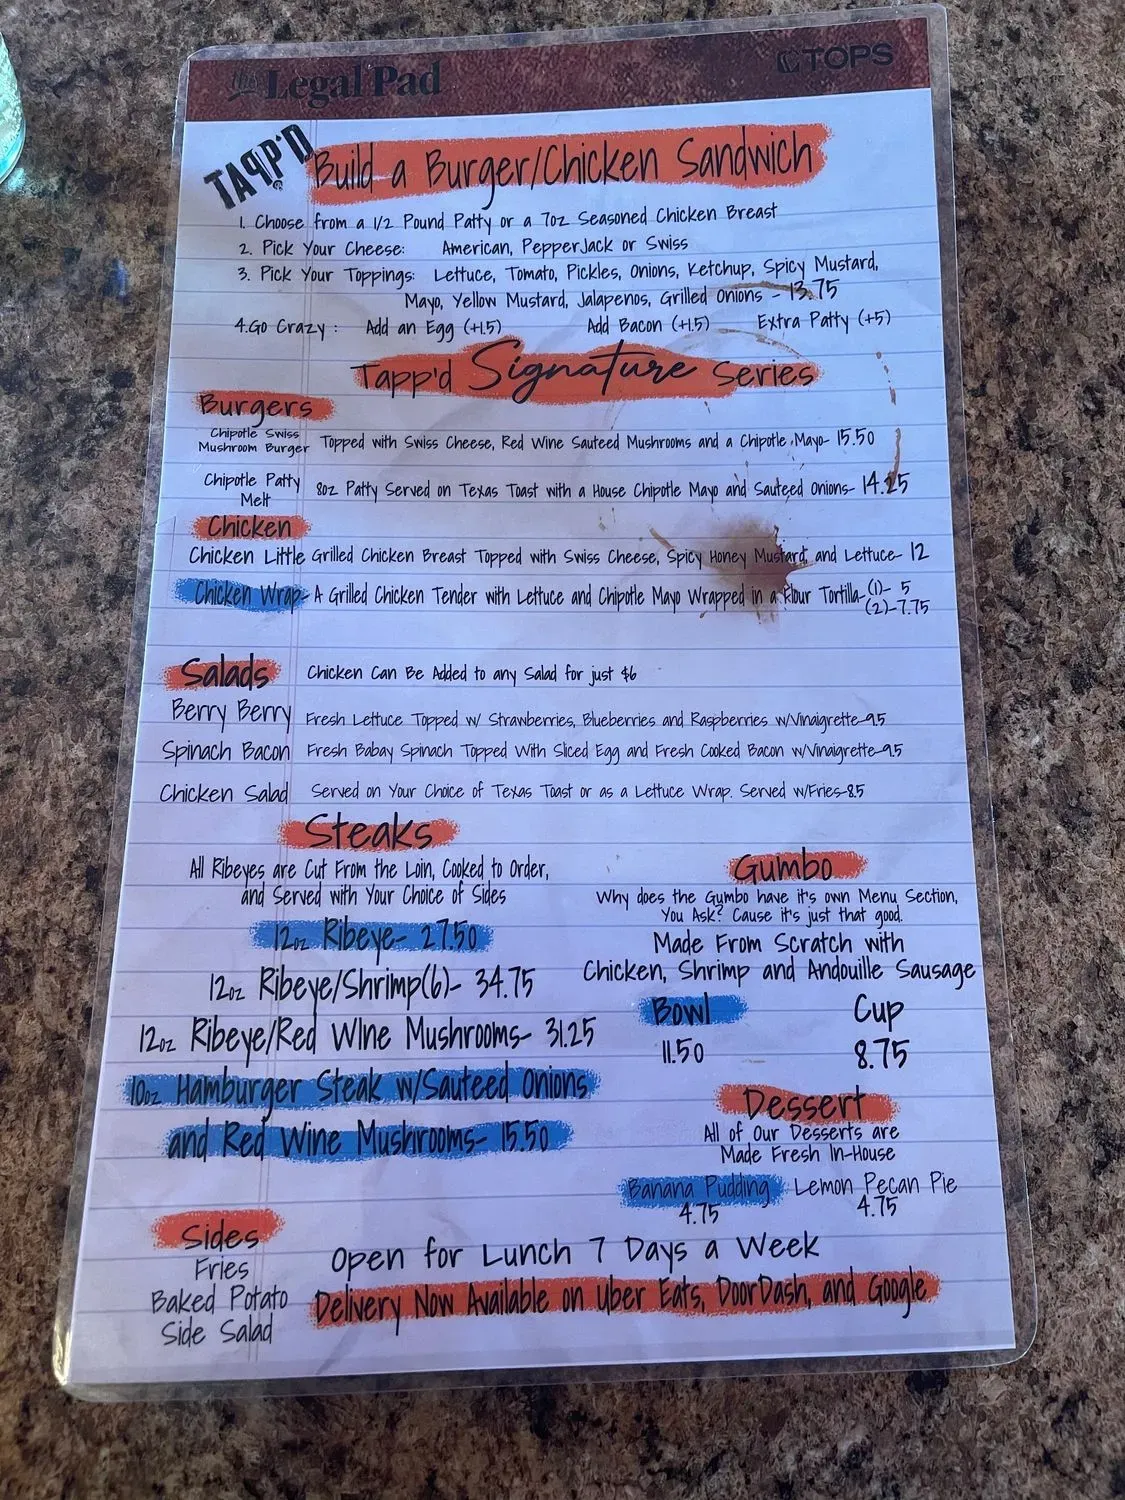 the Legal Pad
TOPS
TAPP'D
Build a Burger/Chicken Sandwich
1. Choose from a 1/2 Pound Patty or a 7oz Seasoned Chicken Breast
2. Pick Your Cheese: American, PepperJack or Swiss
3. Pick Your Toppings: Lettuce, Tomato, Pickles, Onions, Ketchup, Spicy Mustard,
Mayo, Yellow Mustard, Jalapenos, Grilled Onions - 13.75
4.Go Crazy: Add an Egg (+1.5) Add Bacon (+1.5) Extra Patty (+5)
Tapp'd Signature Series
Burgers
Chipotle Swiss
Mushroom Burger Topped with Swiss Cheese, Red Wine Sauteed Mushrooms and a Chipotle Mayo- 15.50
Chipotle Patty
Melt 8oz Patty Served on Texas Toast with a House Chipotle Mayo and Sauteed Onions- 14.25
Chicken
Chicken Little Grilled Chicken Breast Topped with Swiss Cheese, Spicy Honey Mustard, and Lettuce- 12
Chicken Wrap- A Grilled Chicken Tender with Lettuce and Chipotle Mayo Wrapped in a Flour Tortilla-(1)- 5
(2)-7.75
Salads Chicken Can Be Added to any Salad for just $6
Berry Berry Fresh Lettuce Topped w/ Strawberries, Blueberries and Raspberries w/Vinaigrette-9.5
Spinach Bacon Fresh Babay Spinach Topped With Sliced Egg and Fresh Cooked Bacon w/Vinaigrette-9.5
Chicken Salad Served on Your Choice of Texas Toast or as a Lettuce Wrap. Served w/Fries-8.5
Steaks
All Ribeyes are Cut From the Loin, Cooked to Order,
and Served with Your Choice of Sides
12oz Ribeye- 27.50
12oz Ribeye/Shrimp(6)- 34.75
12oz Ribeye/Red WIne Mushrooms- 31.25
10oz Hamburger Steak w/Sauteed Onions
and Red Wine Mushrooms- 15.50
Gumbo
Why does the Gumbo have it's own Menu Section,
You Ask? Cause it's just that good.
Made From Scratch with
Chicken, Shrimp and Andouille Sausage
Bowl Cup
11.50 8.75
Dessert
All of Our Desserts are
Made Fresh In-House
Banana Pudding Lemon Pecan Pie
4.75 4.75
Sides
Fries
Baked Potato
Side Salad
Open for Lunch 7 Days a Week
Delivery Now Available on Uber Eats, DoorDash, and Google